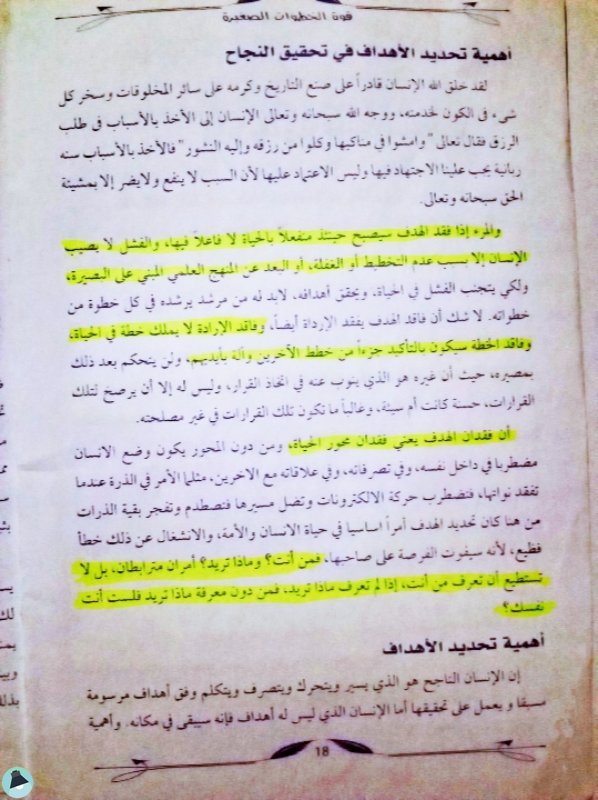 قوة الخطوات الصغيرة
أهمية تحديد الأهداف في تحقيق النجاح
لقد خلق الله الإنسان قادراً على صنع التاريخ وكرمه على سائر المخلوقات وسخر كل
شيء في الكون لخدمته، ووجه الله سبحانه وتعالى الإنسان إلى الأخذ بالأسباب في طلب
الرزق فقال تعالى "وامشوا في مناكبها وكلوا من رزقه وإليه النشور" فالأخذ بالأسباب سنه
ربانية يجب علينا الاجتهاد فيها وليس الاعتماد عليها لأن السبب لا ينفع ولايضر إلا بمشيئة
الحق سبحانه وتعالى.
والمرء إذا فقد الهدف سيصبح حينئذ منفعلاً بالحياة لا فاعلاً فيها، والفشل لا يصيب
الإنسان إلا بسبب عدم التخطيط أو الغفلة، أو البعد عن المنهج العلمي المبني على البصيرة،
ولكي يتجنب الفشل في الحياة، ويحقق أهدافه، لابد له من مرشد يرشده في كل خطوة من
خطواته. لا شك أن فاقد الهدف يفقد الإرداة أيضاً، وفاقد الإرادة لا يملك خطة في الحياة،
وفاقد الخطة سيكون بالتأكيد جزءاً من خطط الآخرين وآلة بأيديهم، ولن يتحكم بعد ذلك
بمصيره، حيث أن غيره هو الذي ينوب عنه في اتخاذ القرار، وليس له إلا أن يرضخ لتلك
القرارات، حسنة كانت أم سيئة، وغالباً ما تكون تلك القرارات في غير مصلحته.
أن فقدان الهدف يعني فقدان محور الحياة، ومن دون المحور يكون وضع الانسان
مضطربا في داخل نفسه، وفي تصرفاته، وفي علاقاته مع الاخرين، مثلما الأمر في الذرة عندما
تفقد نواتها، فتضطرب حركة الالكترونات وتضل مسيرها فتصطدم وتفجر بقية الذرات
من هنا كان تحديد الهدف أمراً اساسيا في حياة الانسان والأمة، والانشغال عن ذلك خطأ
فظيع، لأنه سيفوت الفرصة على صاحبها، فمن أنت؟ وماذا تريد؟ أمران مترابطان، بل لا
تستطيع أن تعرف من أنت، إذا لم تعرف ماذا تريد، فمن دون معرفة ماذا تريد فلست أنت
نفسك؟
أهمية تحديد الأهداف
إن الإنسان الناجح هو الذي يسير ويتحرك ويتصرف ويتكلم وفق أهداف مرسومة
مسبقا و يعمل على تحقيقها أما الإنسان الذي ليس له أهداف فإنه سيبقى في مكانه. وأهمية
18